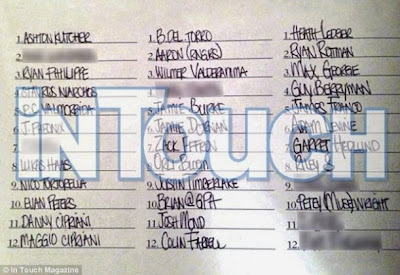 1. ASHTON KUTCHER
2.
3. RYAN PHILIPPE
4. STAVROS NIARCHOS
5. P.C. VALMORBIDA
6. J. PHOENIX
7.
8. LUKAS HAAS
9. NICO TORTORELLA
10. EVAN PETERS
11. DANNY CIPRIANI
12. MAGGIO CIPRIANI
1. B. DEL TORRO
2. AARON (ONGRS)
3. WILMER VALDERAMMA
4.
5. JAMIE BURKE
6. JAMIE DORNAN
7. ZACK EFFRON
8. ORLY BLOOM
9. JUSTIN TIMBERLAKE
10. BRIAN @ GPA
11. JOSH MOND
12. COLIN FARRELL
1. HEATH LEDGER
2. RYAN ROTTMAN
3. MAX GEORGE
4. GUY BERRYMAN
5. JAMES FRANCO
6. ADAM LEVINE
7. GARRET HEDLUND
8. RILEY S
9.
10. PETEY WRIGHT
11.
12.
INTouch
© In Touch Magazine